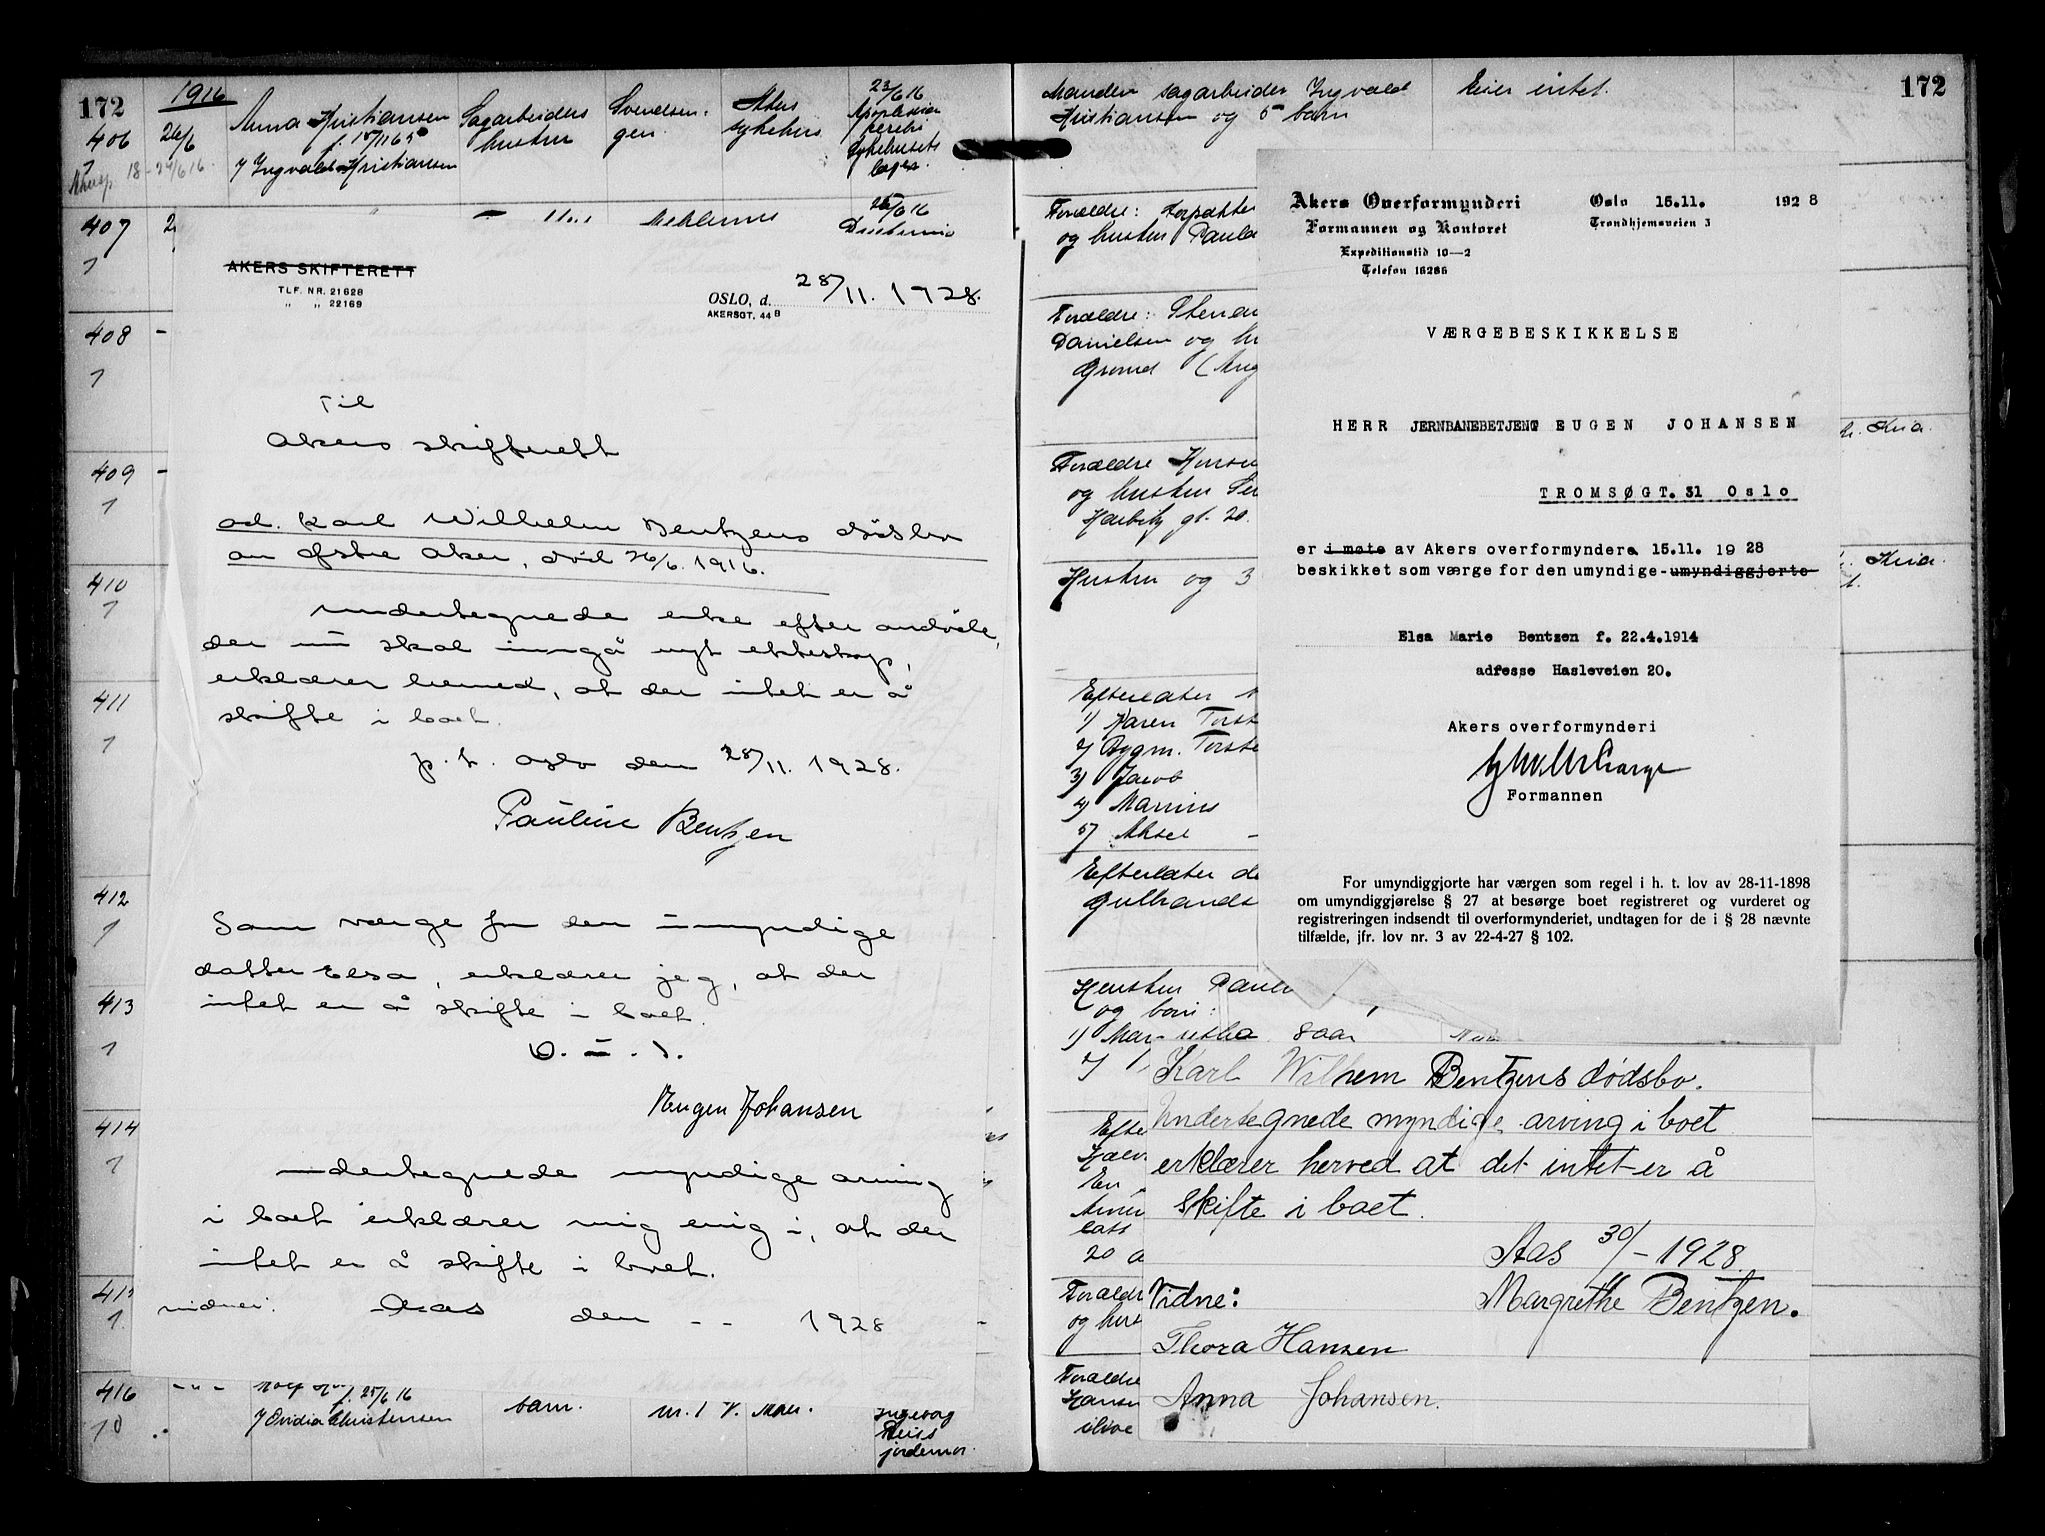 172
1916
406
26/6
Anna Kristiansen
Sagarbeiders
hustru
Svendsen-
gen
Akers
sykehus
23/6 16
Apoplexia
cerebri
sykehusets
læge
18-24/6 16
f Ingvald Kristiansen
407
1
25/6 16
408
1
409
1
410
1
411
1
412
1
413
1
414
1
416
10
AKERS SKIFTERETT
TLF. NR. 21628
" " 22169
OSLO, d. 28/11. 1928.
AKERSGT. 44 B
Til
Akers skifterett
ad. Karl Wilhelm Bentzens dødsbo
av Østre Aker, død 26/6. 1916.
Undertegnede enke efter avdøde,
der nu skal inngå nyt ekteskap,
erklærer herved, at der intet er å
skifte i boet.
p. t. Oslo den 28/11. 1928.
Pauline Bentzen
Som værge for den umyndige
datter Elsa, erklærer jeg, at der
intet er å skifte i boet.
D. u. s.
Eugen Johansen
Undertegnede myndige arving
i boet erklærer mig enig i, at der
intet er å skifte i boet.
vidner. Aas den - - 1928
f. 25/6 16
f Ovidia Christensen
barn.
nr. 1 V. Aker.
Ingeborg
Reiss
jordemor
Manden sagarbeider Ingvald
Kristiansen og 5 barn
Eier intet.
172
Forældre:
og hustru Paula
Forældre:
Danielsen og
Forældre
og hustru
Hustru og 3
Efterlater
1) Karen
2) Dygm.
3) Jacob
4) Marius
5) Aksel
Efterlater
Hustru
og barn:
1) Margretha 8 aar
2)
En
20
Forældre
og hust
Forældre
Hansen
Kria.
Kria.
Akers Overformynderi
Formannen og Kontoret
Expeditionstid 10—2
Telefon 16286
Oslo 15.11. 1928
Trondhjemsveien 3
VÆRGEBESKIKKELSE
HERR JERNBANEBETJENT EUGEN JOHANSEN
TROMSØGT. 31 Oslo
er i møte av Akers overformyndere 15.11. 1928
beskikket som værge for den umyndige-umyndiggjorte
Elsa Marie Bentzen f. 22.4.1914
adresse Hasleveien 20.
Akers overformynderi
Formannen
For umyndiggjorte har værgen som regel i h. t. lov av 28-11-1898
om umyndiggjørelse § 27 at besørge boet registreret og vurderet og
registreringen indsendt til overformynderiet, undtagen for de i § 28 nævnte
tilfælde, jfr. lov nr. 3 av 22-4-27 § 102.
Karl Wilhem Bentzens dødsbo.
Undertegnede myndige arving i boet
erklærer herved at det intet er å
skifte i boet.
Aas 30/11 - 1928.
Vidne:
Margrethe Bentzen.
Thora Hansen
Anna Johansen.